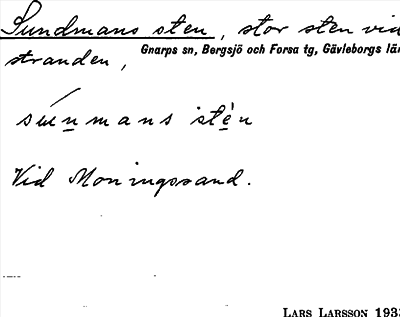 Sundmans sten, stor sten vid
Gnarps sn, Bergsjö och Forsa tg, Gävleborgs län
stranden,
Vid Moningssand.
LARS LARSSON 1933